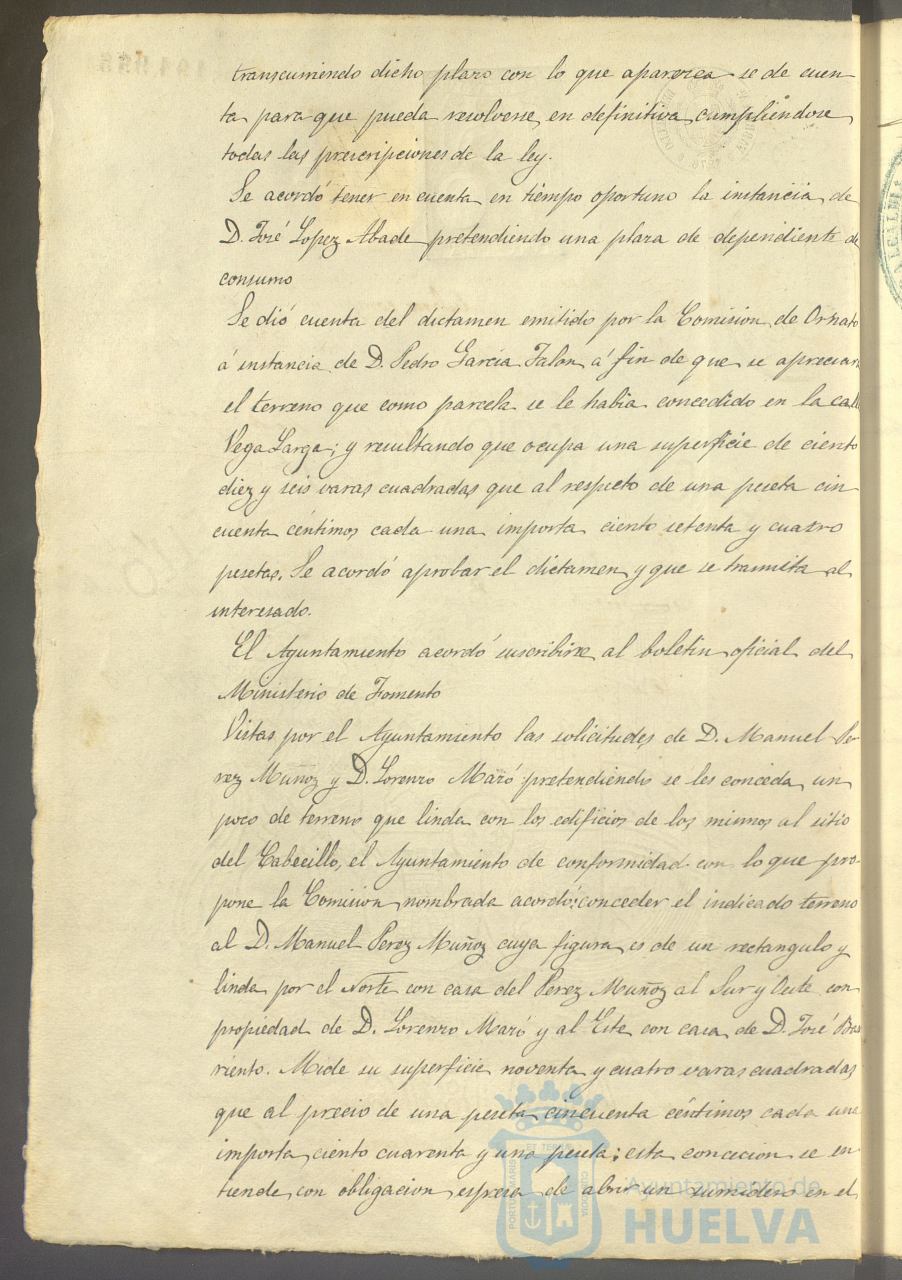 transcurriendo dicho plazo con lo que aparezca se de cuen
ta para que pueda resolverse en definitiva cumpliendose
todas las prescripciones de la ley.
Se acordó tener en cuenta en tiempo oportuno la instancia de
D. José Lopez Abade pretendiendo una plaza de dependiente de
consumo
Se dió cuenta del dictamen emitido por la Comision de Ornato
á instancia de D. Pedro Garcia Talon á fin de que se apreciara
el terreno que como parcela se le habia concedido en la call
Vega Larga; y resultando que ocupa una superficie de ciento
diez y seis varas cuadradas que al respeto de una peseta cin
cuenta céntimos cada una importa ciento setenta y cuatro
pesetas. Se acordó aprobar el dictamen y que se tramita al
interesado.
El Ayuntamiento acordó suscribirse al boletin oficial del
Ministerio de Fomento
Vistas por el Ayuntamiento las solicitudes de D. Manuel Pe-
rez Muñoz y D. Lorenzo Mazó pretendiendo se les conceda un
poco de terreno que linda con los edificios de los mismos al sitio
del Cabecillo, el Ayuntamiento de conformidad con lo que pro-
pone la Comision nombrada acordó: conceder el indicado terreno
al D. Manuel Perez Muñoz cuya figura es de un rectangulo y
linda por el Norte con casa del Perez Muñoz al Sur y Oeste con
propiedad de D. Lorenzo Mazó y al Este con casa de D. José Ba
rriento. Mide su superficie noventa y cuatro varas cuadradas
que al precio de una peseta cincuenta céntimos cada una
importa ciento cuarenta y una peseta: esta concecion se en
tiende con obligacion espresa de abrir un sumidero en el
Ayuntamiento de
HUELVA